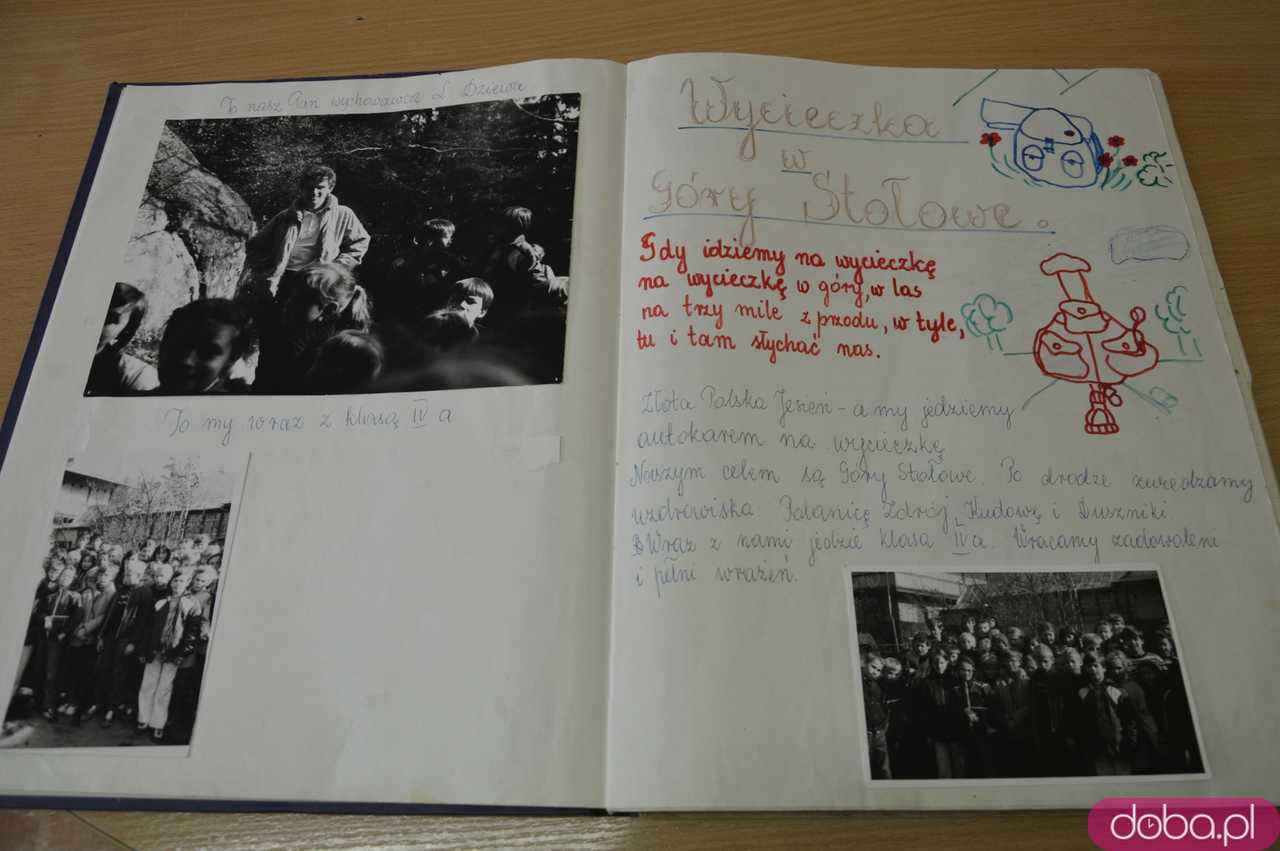 To nasz Pan wychowawca Ł Dziewa
To my wraz z klasą IV a
Wycieczka
w
Góry Stołowe.
Gdy idziemy na wycieczkę
na wycieczkę w góry, w las
na trzy mile z przodu, w tyle,
tu i tam słychać nas.
Złota Polska Jesień - a my jedziemy
autokarem na wycieczkę
Naszym celem są Góry Stołowe. Po drodze zwiedzamy
uzdrowiska Polanicę Zdrój, Kudowę i Duszniki
Wraz z nami jedzie klasa IV a. Wracamy zadowoleni
i pełni wrażeń.
doba.pl